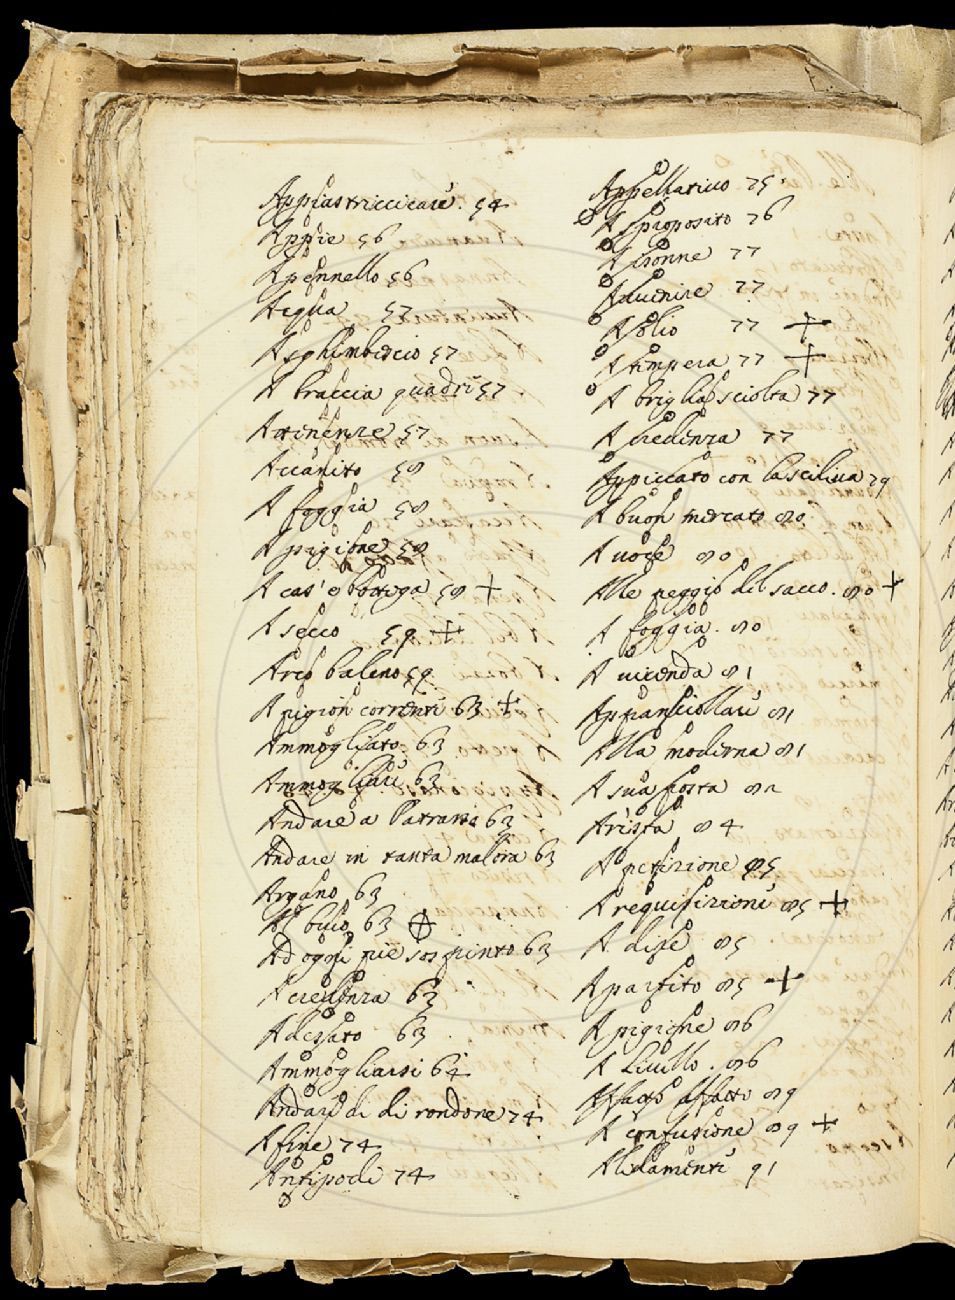 Appiastricciare. 54
Appiè 56
Apennello 56
Aeglia 57
Asghimbescio 57
A braccia quadre 57
Attenense 57
Accanito 58
A foggia 58
A pigione 58
A cas' o bottega 58 +
A secco 59 +
Arco baleno 59
A pigion correnti 63 +
Ammogliato 63
Ammogliare 63
Andare a Patrasso 63
Andare in tanta malora 63
Argano 63
Al buio 63
Ad oggi piè sospinto 63
A credenza 63
Adessato 63
Ammogliarsi 64
Andare di di rondone 74
A fine 74
Antipode 74
Appellativo 75
A sproposito 76
A isonne 77
Avvenire 77
A solio 77 +
A tempera 77 +
A briglia sciolta 77
A credenza 77
Appiccato con la sciliva 79
A buon mercato 80
A voce 80
Alle peggio del sacco. 80 +
A foggia. 80
A vicenda 81
Appansciollare 81
Alla moderna 81
A sua posta 82
Arista 84
A petizione 85
A requisizione 85 +
A dise 85
A partito 85 +
A pigione 86
A livello. 86
Affatto affatto 89
A confusione 89 +
Alidamente 91